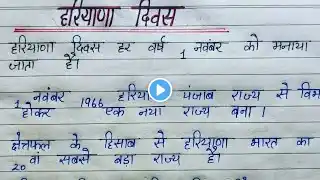 हरियाणा दिवस
हरियाणा दिवस हर वर्ष 1 नवंबर को मनाया
जाता है।
1 नवंबर 1966 पंजाब राज्य से
होकर एक नया राज्य बना।
क्षेत्रफल के हिसाब से हरियाणा भारत का
20 वां सबसे बड़ा राज्य है।